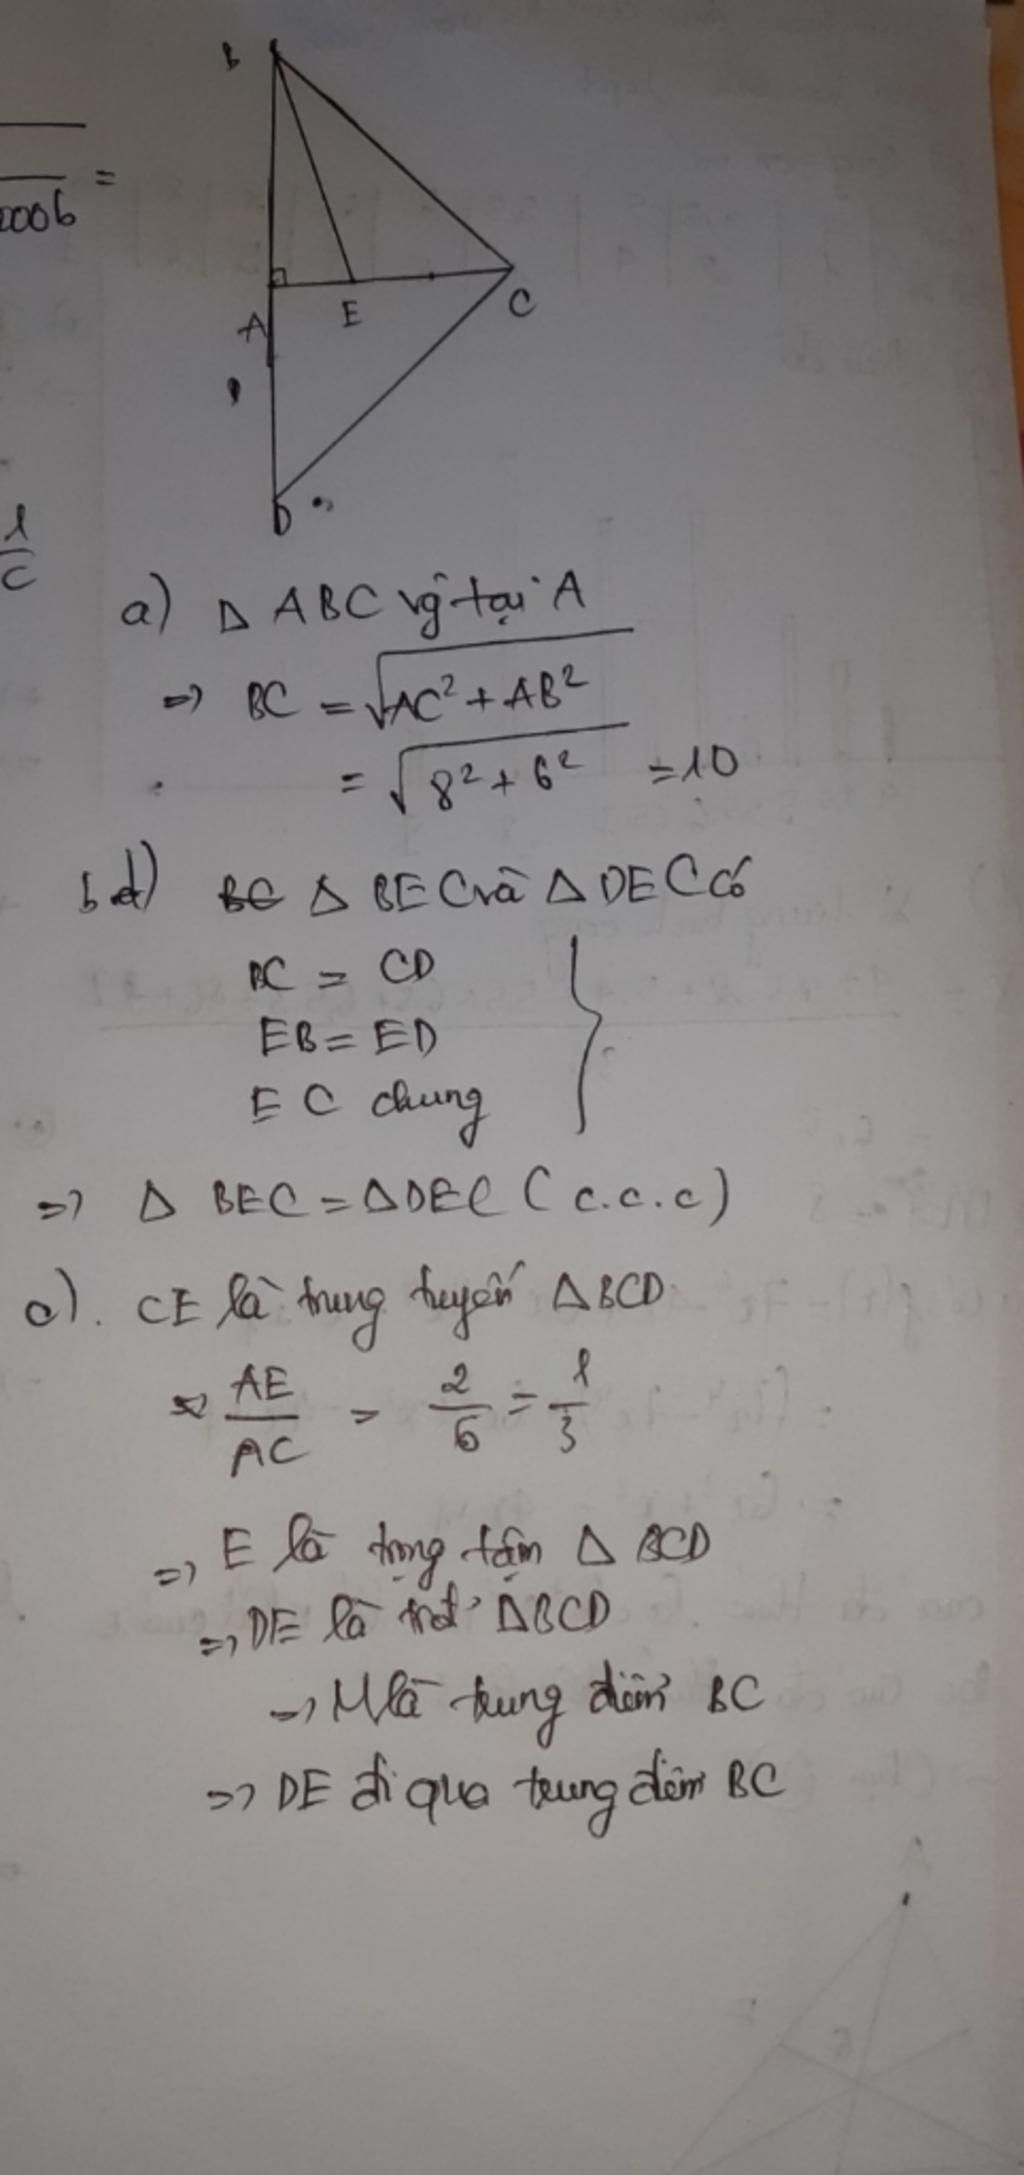 B
=
0006
A
E
C
1
c
D
a) Δ ABC vg tại A
=> BC = √AC² + AB²
= √8² + 6² = 10
b d) BC Δ BEC và Δ DEC có
BC = CD
EB = ED
EC chung
=> Δ BEC = Δ DEC (c.c.c)
c). CE là trung tuyến Δ BCD
AE/AC = 2/6 = 1/3
=> E là trọng tâm Δ BCD
=> DE là Δ BCD
=> M là trung điểm BC
=> DE đi qua trung điểm BC